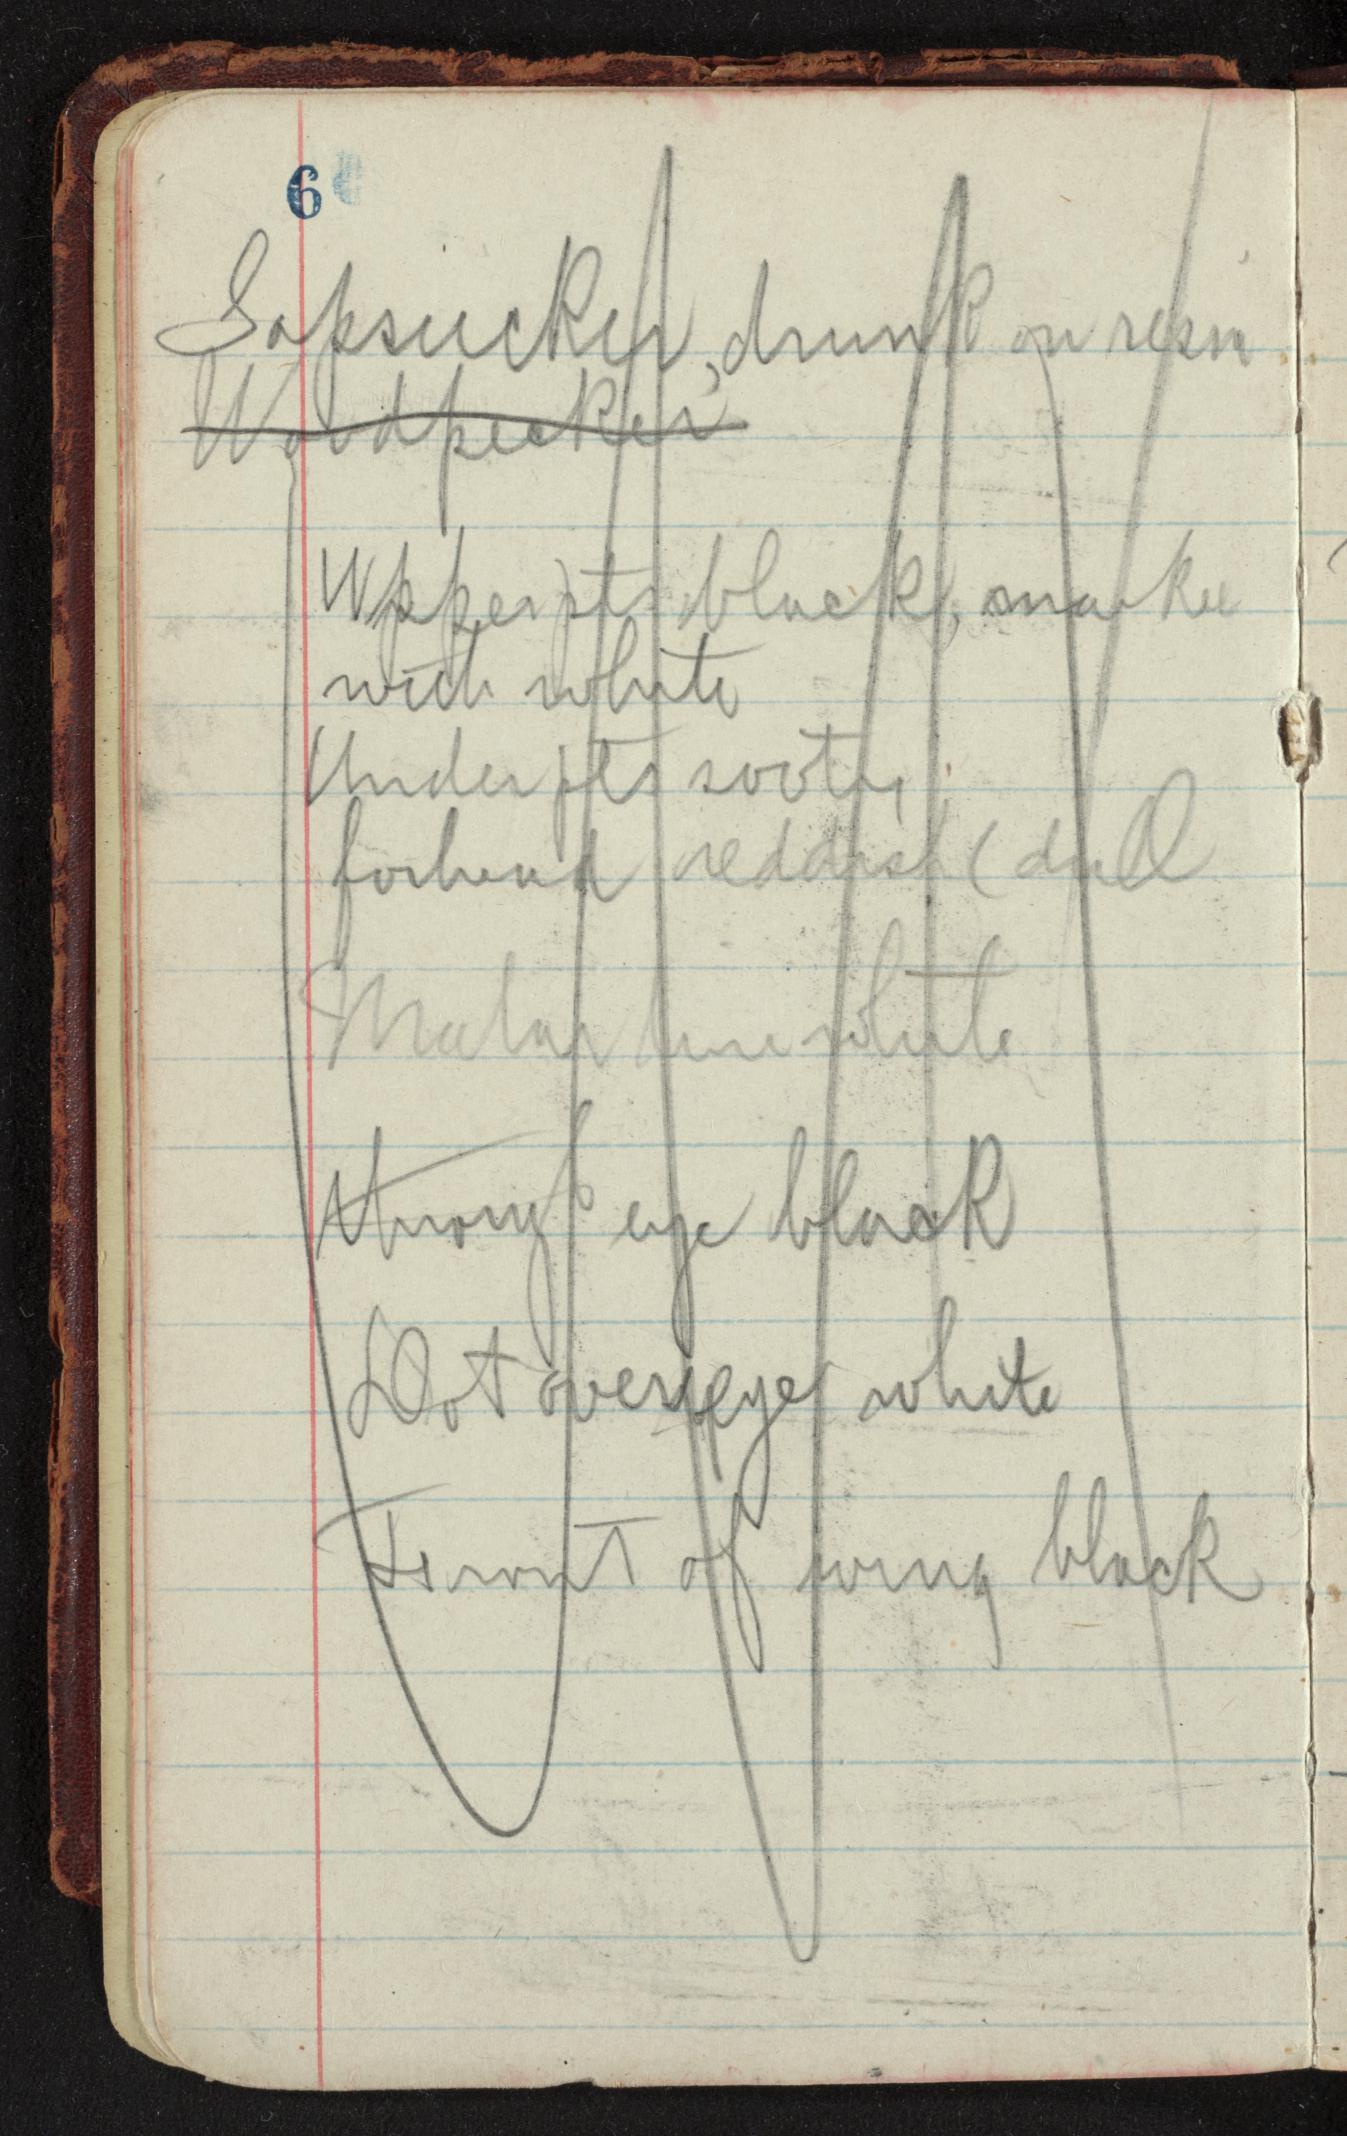 6
Sapsucker, drunk on resin
Woodpecker
Upper pts black, marke
with white
Under pts sooty
forhead reddish (dull
Malar line white
throug eye black
Dot over eye white
Front of wing black